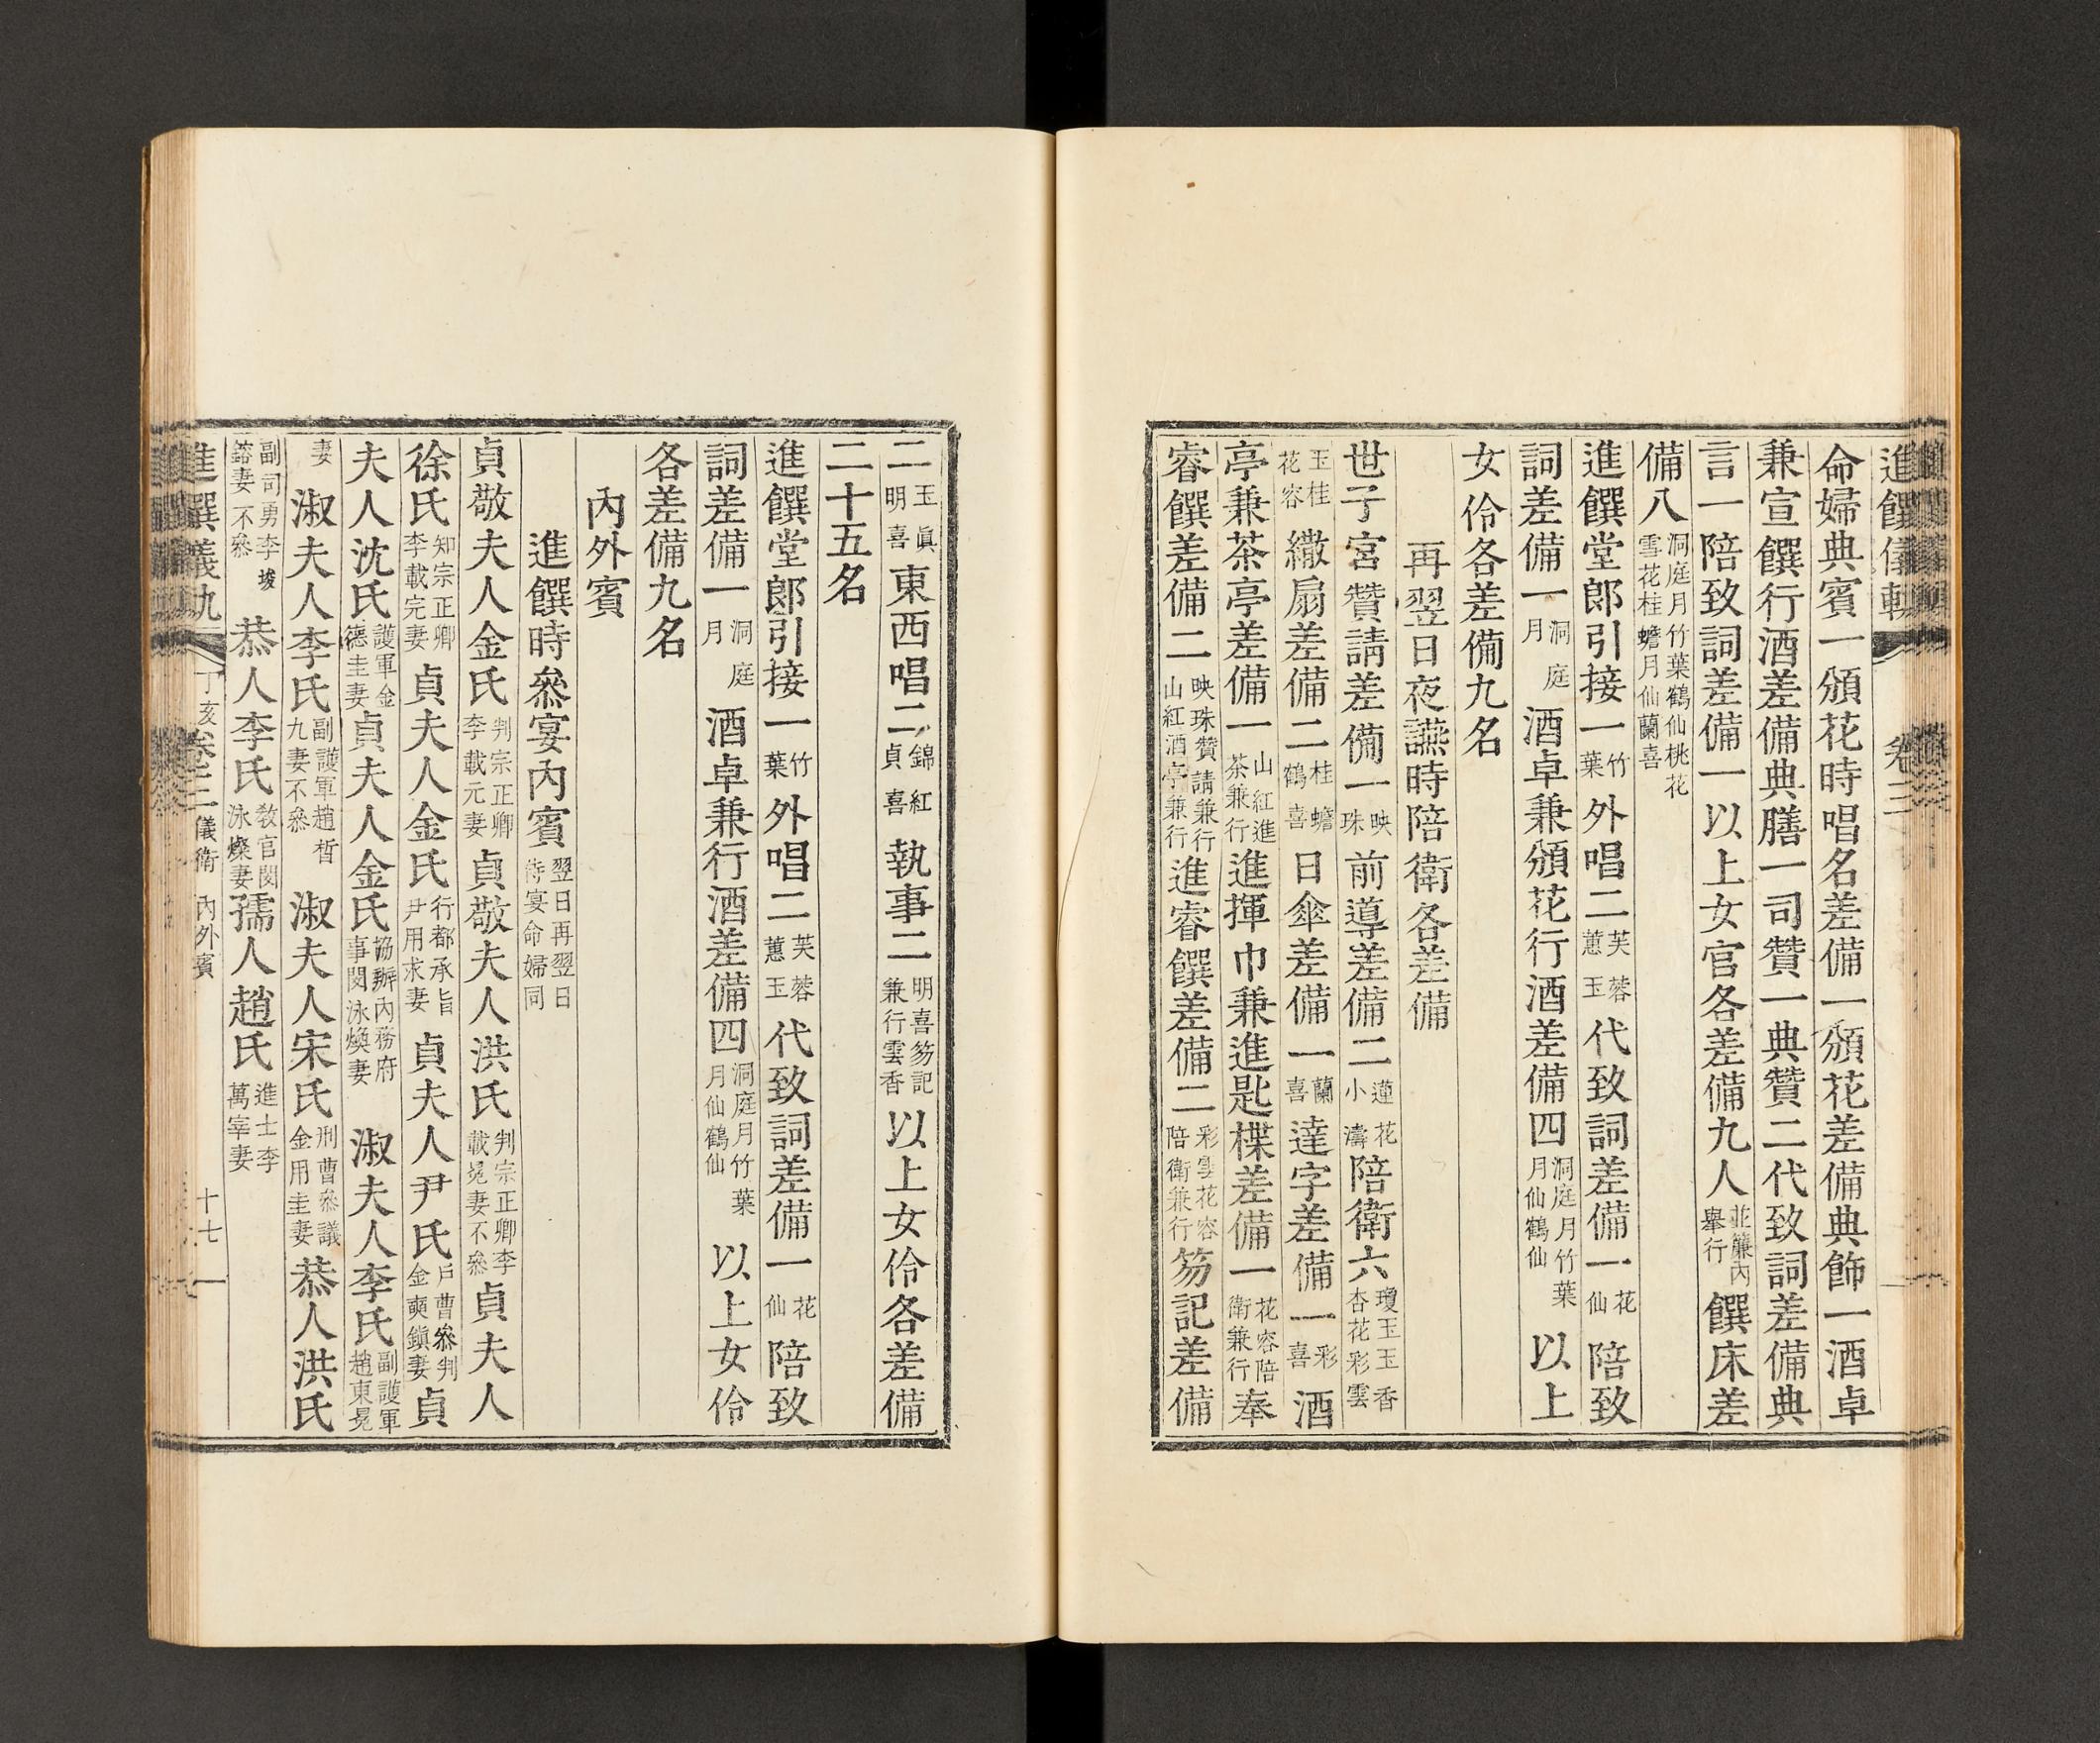 進饌儀軌 卷三
命婦典賓一頒花時唱名差備一頒花差備典飾一酒卓
兼宣饌行酒差備典膳一司贊一典贊二代致詞差備典
言一陪致詞差備一以上女官各差備九人並簾內擧行饌床差
備八洞庭月竹葉鶴仙桃花雪花桂蟾月仙蘭喜
進饌堂郎引接一竹葉外唱二芙蓉蕙玉代致詞差備一花仙陪致
詞差備一洞庭月酒卓兼頒花行酒差備四洞庭月竹葉月仙鶴仙以上
女伶各差備九名
再翌日夜讌時陪衛各差備
世子宮贊請差備一映珠前導差備二蓮花小濤陪衛六瓊玉玉香杏花彩雲
玉桂花容繖扇差備二桂蟾鶴喜日傘差備一蘭喜達字差備一彩喜酒
亭兼茶亭差備一山紅進茶兼行進揮巾兼進匙楪差備一花容陪衛兼行奉
睿饌差備二映珠贊請兼行山紅酒亭兼行進睿饌差備二彩雲花容陪衛兼行笏記差備
二玉眞明喜東西唱二錦紅貞喜執事二明喜笏記兼行雲香以上女伶各差備
二十五名
進饌堂郎引接一竹葉外唱二芙蓉蕙玉代致詞差備一花仙陪致
詞差備一洞庭月酒卓兼行酒差備四洞庭月竹葉月仙鶴仙以上女伶
各差備九名
內外賓
進饌時叅宴內賓翌日再翌日侍宴命婦同
貞敬夫人金氏判宗正卿李載元妻貞敬夫人洪氏判宗正卿李載冕妻不叅貞夫人
徐氏知宗正卿李載完妻貞夫人金氏行都承旨尹用求妻貞夫人尹氏戶曹叅判金奭鎭妻貞
夫人沈氏護軍金德圭妻貞夫人金氏協辦內務府事閔泳煥妻淑夫人李氏副護軍趙東冕
妻淑夫人李氏副護軍趙晳九妻不叅淑夫人宋氏刑曹叅議金用圭妻恭人洪氏
副司勇李埈鎔妻不叅恭人李氏敎官閔泳燦妻孺人趙氏進士李萬宰妻
進饌儀軌 丁亥卷三 儀衛 內外賓 十七